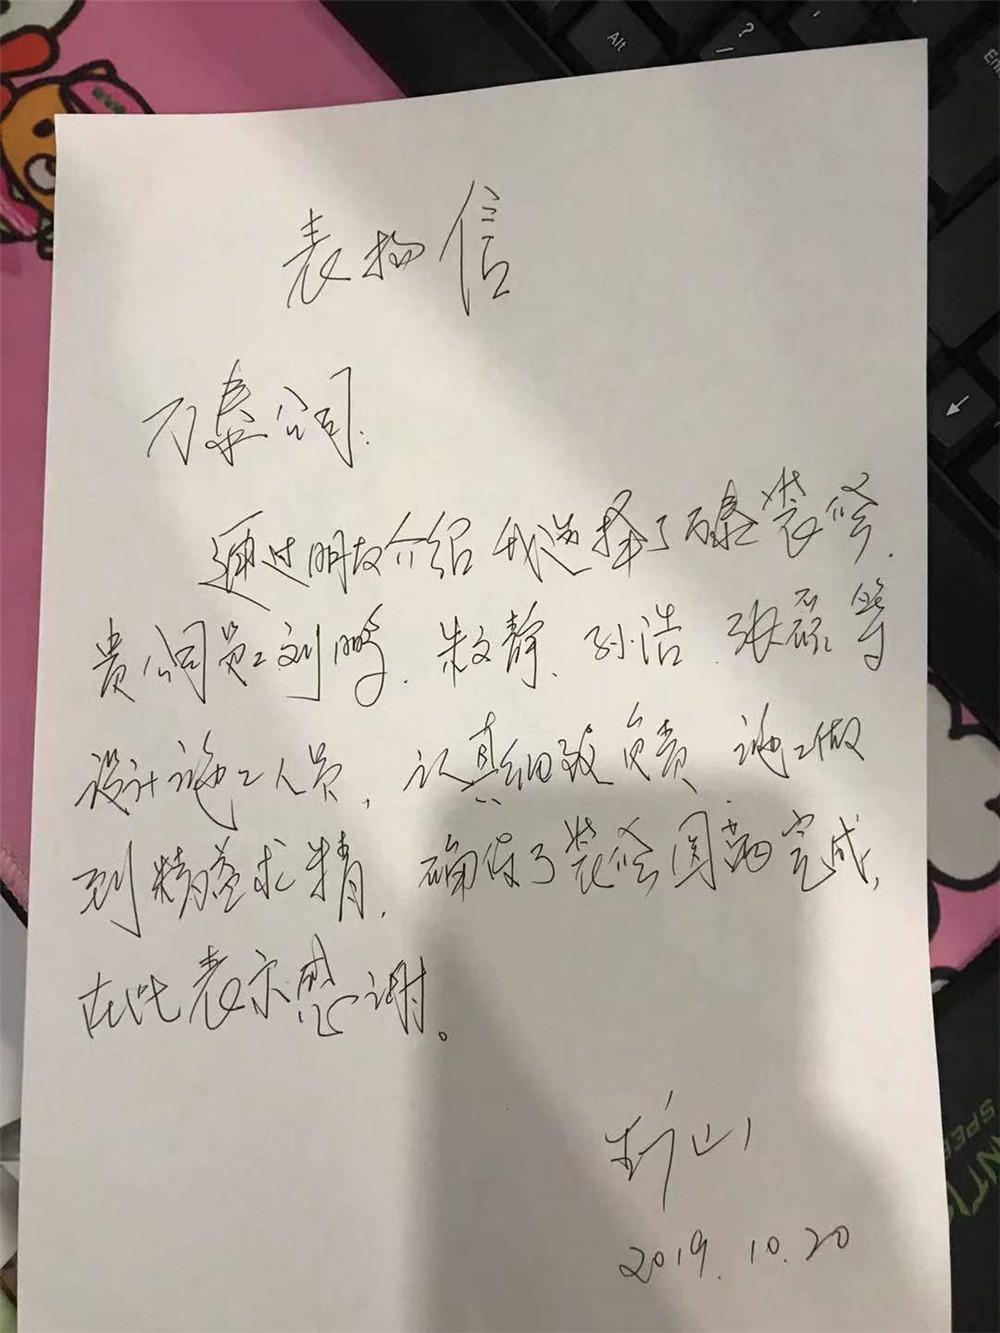 Alt
?
/
En
表扬信
万泰公司:
通过朋友介绍我选择了万泰装修.
贵公司员工刘鹏.朱文静、孙浩.张磊等
设计施工人员,认真细致负责.施工做
到精益求精.确保了装修圆满完成,
在此表示感谢。
2019.10.20